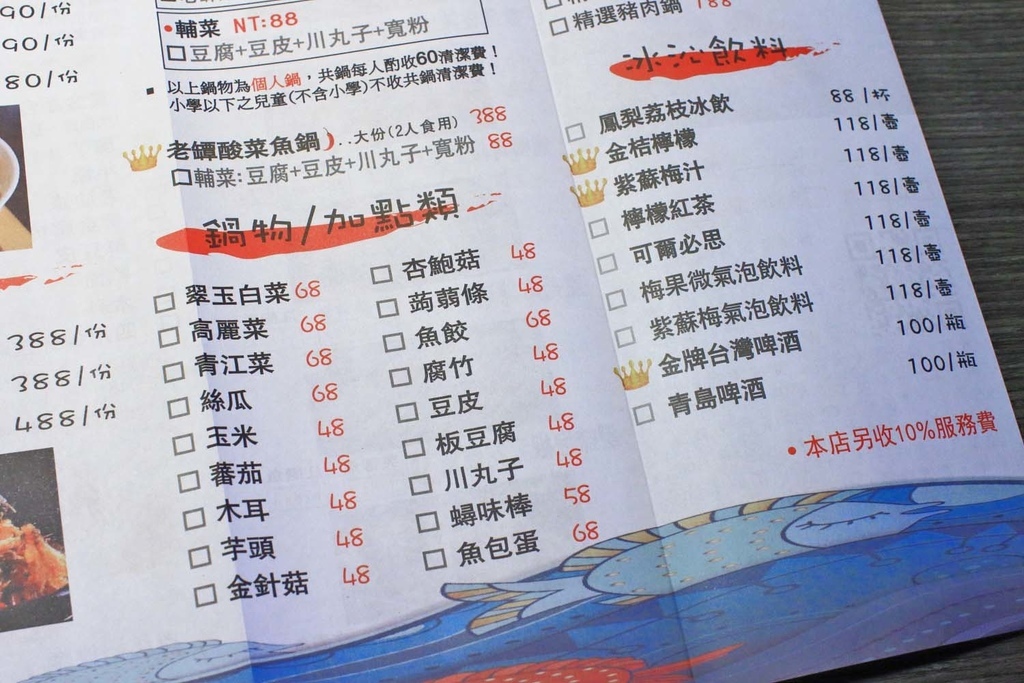 90/份
90/份
80/份
388/份
388/份
488/份
•輔菜 NT:88
□豆腐+豆皮+川丸子+寬粉
▪ 以上鍋物為個人鍋，共鍋每人酌收60清潔費！
小學以下之兒童(不含小學)不收共鍋清潔費！
老罈酸菜魚鍋..大份(2人食用) 388
□輔菜:豆腐+豆皮+川丸子+寬粉 88
鍋物/加點類
□翠玉白菜 68
□高麗菜 68
□青江菜 68
□絲瓜 68
□玉米 48
□蕃茄 48
□木耳 48
□芋頭 48
□金針菇 48
□杏鮑菇 48
□蒟蒻條 48
□魚餃 68
□腐竹 48
□豆皮 48
□板豆腐 48
□川丸子 48
□蟳味棒 58
□魚包蛋 68
□精選豬肉鍋 188
冰沁飲料
□鳳梨荔枝冰飲 88/杯
金桔檸檬 118/壺
紫蘇梅汁 118/壺
□檸檬紅茶 118/壺
□可爾必思 118/壺
□梅果微氣泡飲料 118/壺
□紫蘇梅氣泡飲料 118/壺
金牌台灣啤酒 100/瓶
□青島啤酒 100/瓶
•本店另收10%服務費